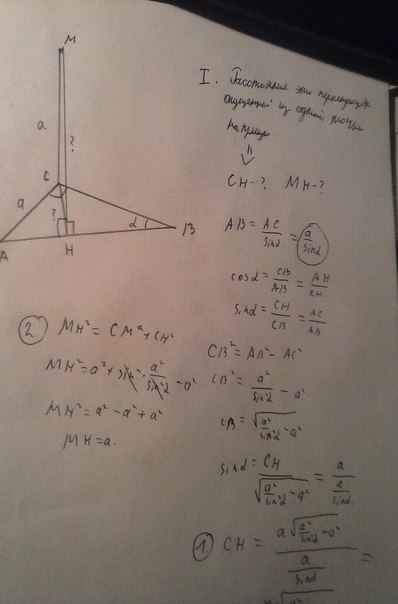 M
a
?
C
a
?
α
A
H
B
I. Расстояние это перпендикуляр
опущенный из одной точки
на прямую
⇓
CH-? MH-?
AB = AC/sinα = a/sinα
cosα = CB/AB = AH/CH
sinα = CH/CB = AC/AB
CB² = AB² - AC²
CB² = a²/sin²α - a²
CB = √(a²/sin²α - a²)
sinα = CH/√(a²/sin²α - a²) = a/(a/sinα)
① CH = a√(a²/sin²α - a²)/(a/sinα) =
② MH² = CM² + CH²
MH² = a² + sin²α · a²/sin²α - a²
MH² = a² - a² + a²
MH = a.